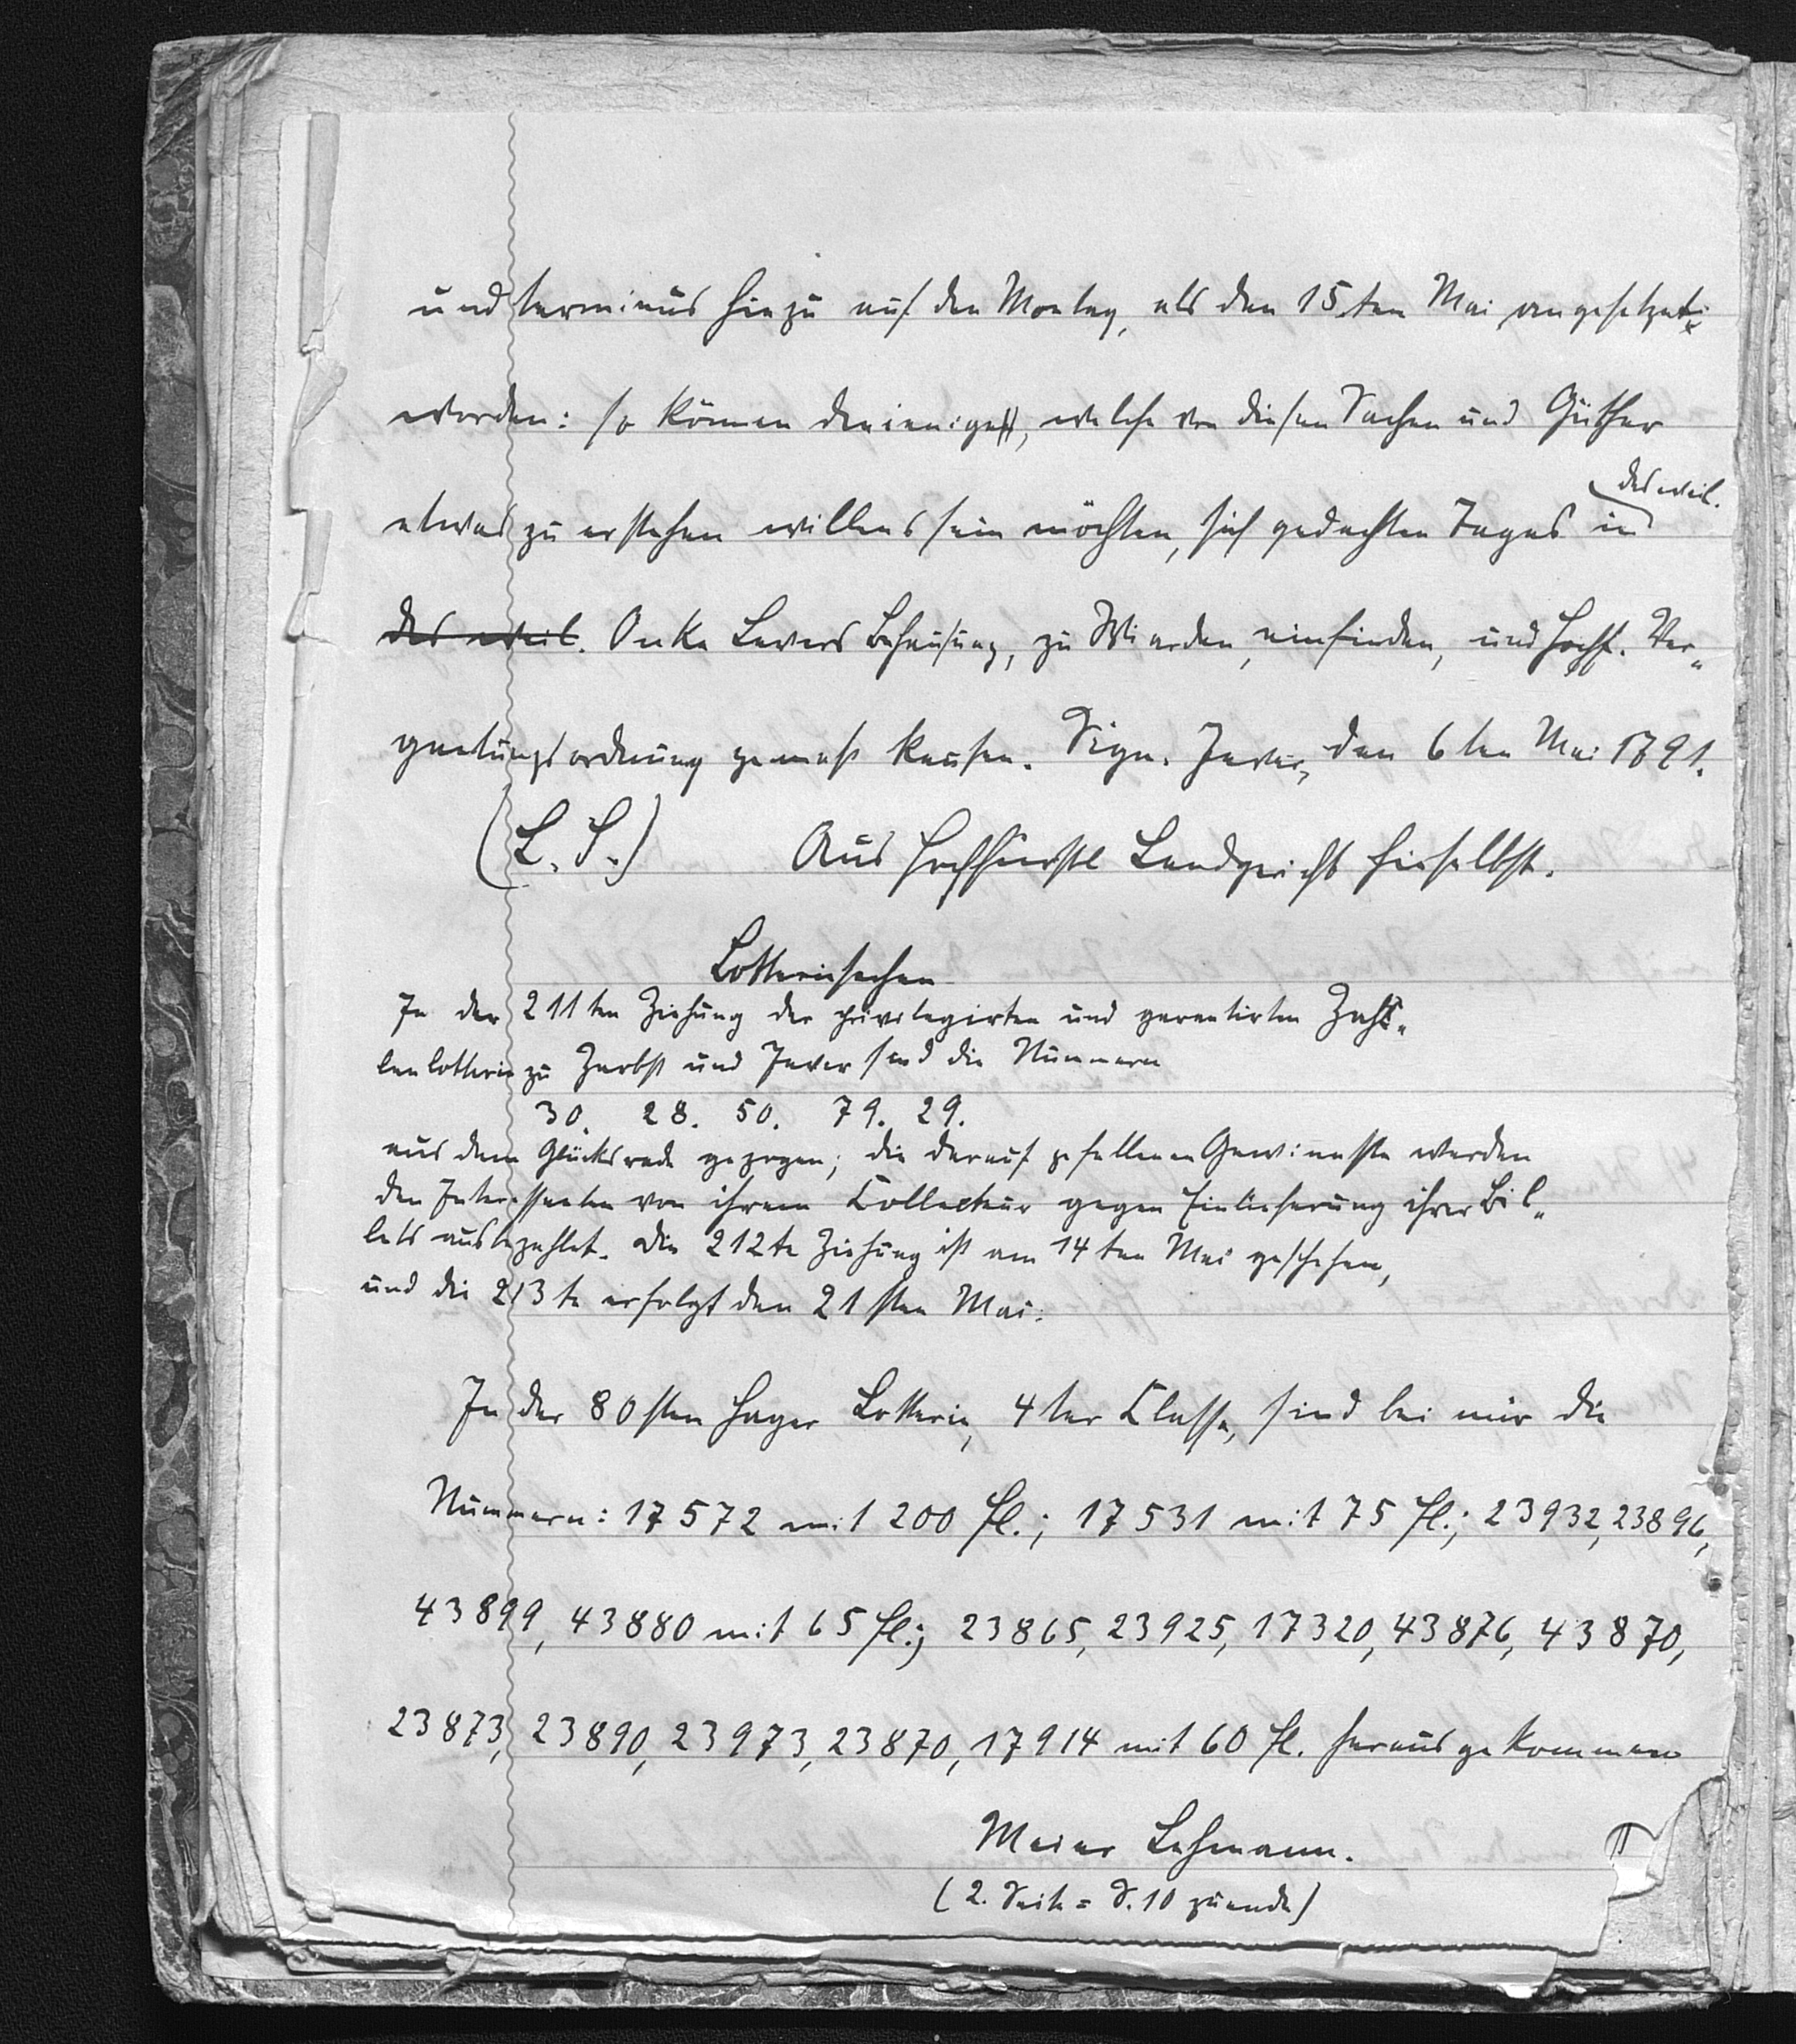 und terminus hiezu auf den Montag, als den 15ten Mai angesetzet
worden: so können diejenigen, welche von diesen Sachen und Güther
des weil.
etwas zu erstehen willens sein möchten, sich gedachten Tages in
des weil. Onke Levers Behausung, zu Wiarden, einfinden, und Hochf. Ver„
gantungsordnung gemäß kaufen. Sign. Jever, den 6ten Mai 1791.
(L. S.) Aus Hochfürstl Landgericht hieselbst.
Lotteriesachen
In der 211ten Ziehung der privilegirten und garantirten Zah„
lenlotterie zu Zerbst und Jever sind die Nummern
30. 28. 50. 79. 29.
aus dem Glücksrade gezogen; die darauf gefallenen Gewinnste werden
den Interessenten von ihrem Collecteur gegen Einlieferung ihrer Bil„
lets ausbezahlet. Die 212te Ziehung ist am 14ten Mai geschehen,
und die 213te erfolgt den 21sten Mai.
In der 80sten Hager Lotterie, 4ter Classe, sind bei mir die
Nummern: 17572 mit 200 fl.; 17531 mit 75 fl.; 23932, 23896,
43899, 43880 mit 65 fl.; 23865, 23925, 17320, 43876, 43870,
23873, 23890, 23973, 23870, 17914 mit 60 fl. herausgekommen
Meier Lehmann.
(2. Seite = S. 10 zuende)